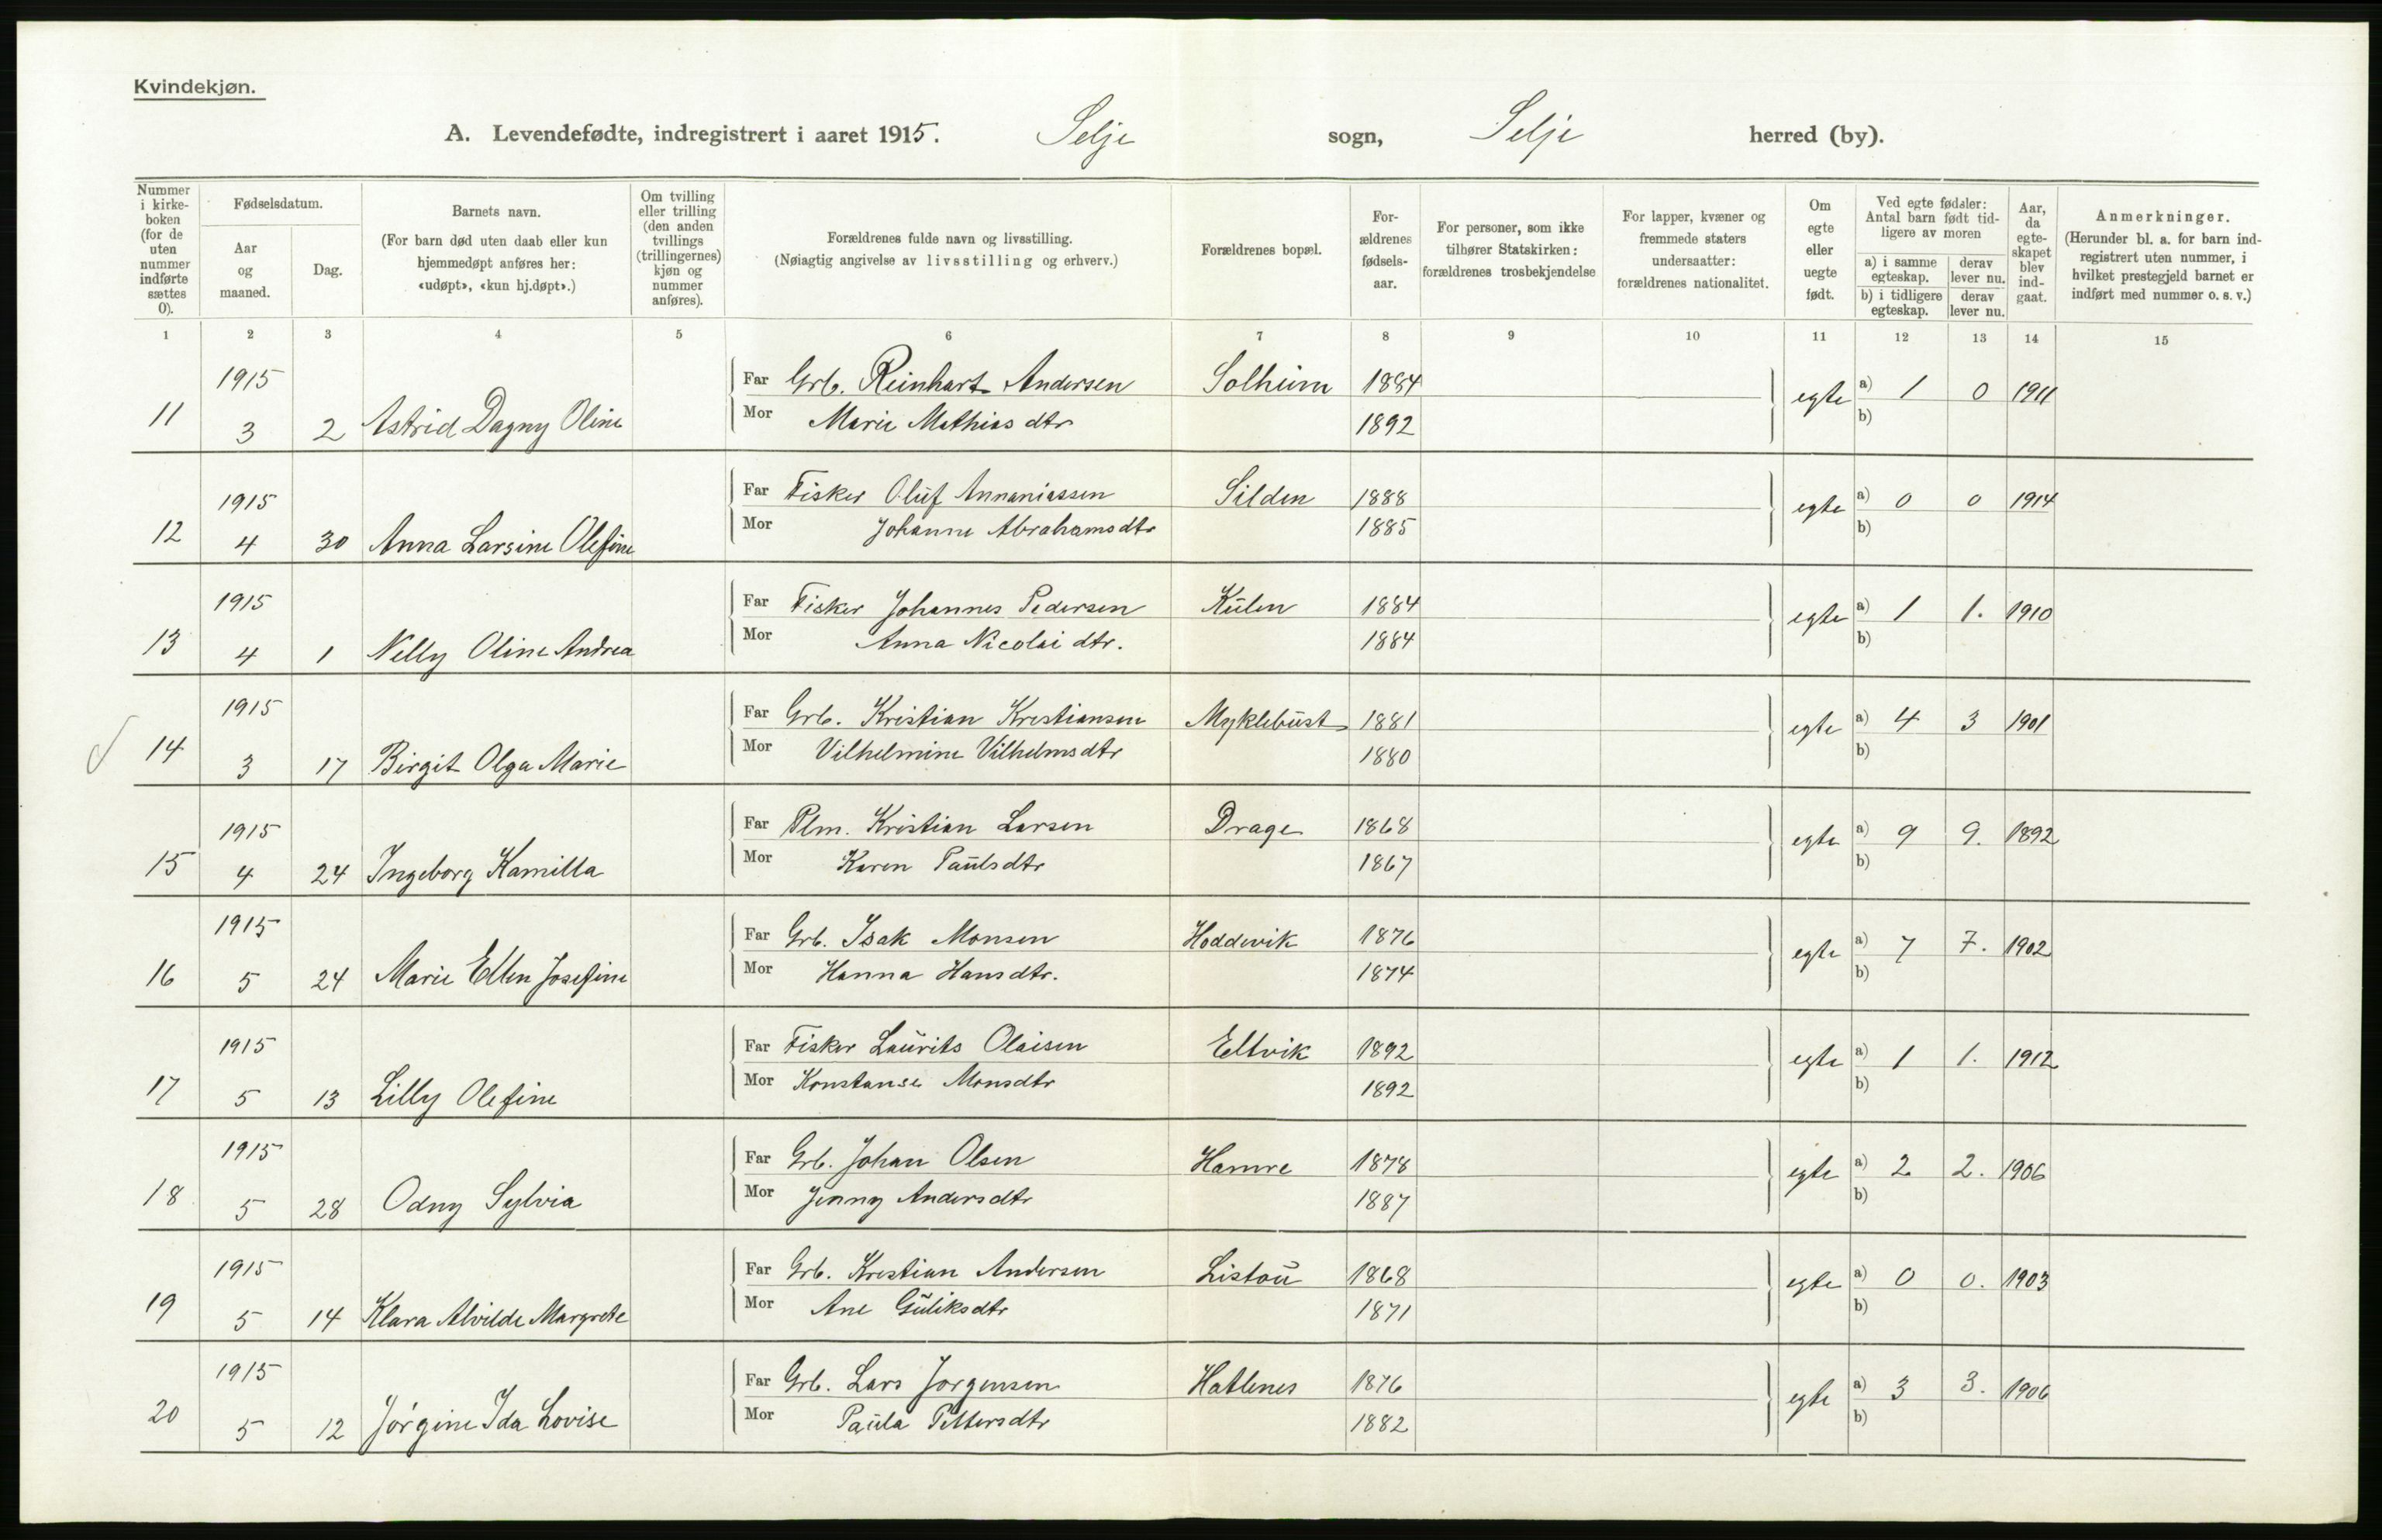 Kvindekjøn.
A. Levendefødte, indregistrert i aaret 1915. Selje sogn, Selje herred (by).
Nummer i kirke-boken (for de uten nummer indførte sættes 0).
Fødselsdatum.
Aar og maaned.
Dag.
Barnets navn.
(For barn død uten daab eller kun hjemmedøpt anføres her: «udøpt», «kun hj.døpt».)
Om tvilling eller trilling (den anden tvillings (trillingernes) kjøn og nummer anføres).
Forældrenes fulde navn og livsstilling.
(Nøiagtig angivelse av livsstilling og erhverv.)
Forældrenes bopæl.
For-ældrenes fødsels-aar.
For personer, som ikke tilhører Statskirken: forældrenes trosbekjendelse
For lapper, kvæner og fremmede staters undersaatter: forældrenes nationalitet.
Om egte eller uegte født.
Ved egte fødsler: Antal barn født tid-ligere av moren
a) i samme egteskap. derav lever nu.
b) i tidligere egteskap. derav lever nu.
Aar, da egte-skapet blev ind-gaat.
Anmerkninger.
(Herunder bl. a. for barn ind-registrert uten nummer, i hvilket prestegjeld barnet er indført med nummer o. s. v.)
1 2 3 4 5 6 7 8 9 10 11 12 13 14 15
1915 Far Grb. Reinhart Andersen Solheim 1884 egte a) 1 0 1911
11 3 2 Astrid Dagny Oline Mor Marie Mathias dtr 1892 b)
1915 Far Fisker Oluf Annaniassen Silden 1888 egte a) 0 0 1914
12 4 30 Anna Larsine Olefine Mor Johanne Abrahamsdtr 1885 b)
1915 Far Fisker Johannes Pedersen Kulen 1884 egte a) 1 1. 1910
13 4 1 Nelly Oline Andrea Mor Anna Nicolai dtr. 1884 b)
1915 Far Grb. Kristian Kristiansen Myklebust 1881 egte a) 4 3 1901
14 3 17 Birgit Olga Marie Mor Vilhelmine Vilhelmsdtr 1880 b)
1915 Far Plm. Kristian Larsen Drage 1868 egte a) 9 9. 1892
15 4 24 Ingeborg Kamilla Mor Karen Paulsdtr 1867 b)
1915 Far Grb. Isak Monsen Hoddevik 1876 egte a) 7 7. 1902
16 5 24 Marie Ellen Josefine Mor Hanna Hansdtr. 1874 b)
1915 Far Fisker Laurits Olaisen Eltvik 1892 egte a) 1 1. 1912
17 5 13 Lilly Olefine Mor Konstanse Monsdtr 1892 b)
1915 Far Grb. Johan Olsen Hamre 1878 egte a) 2 2. 1906
18 5 28 Odny Sylvia Mor Jenny Andersdtr 1887 b)
1915 Far Grb. Kristian Andersen Listou 1868 egte a) 0 0. 1903
19 5 14 Klara Alvilde Margrete Mor Ane Guliksdtr 1871 b)
1915 Far Grb. Lars Jorgensen Hatlenes 1876 egte a) 3 3. 1906
20 5 12 Jørgine Ida Lovise Mor Paula Pettersdtr 1882 b)